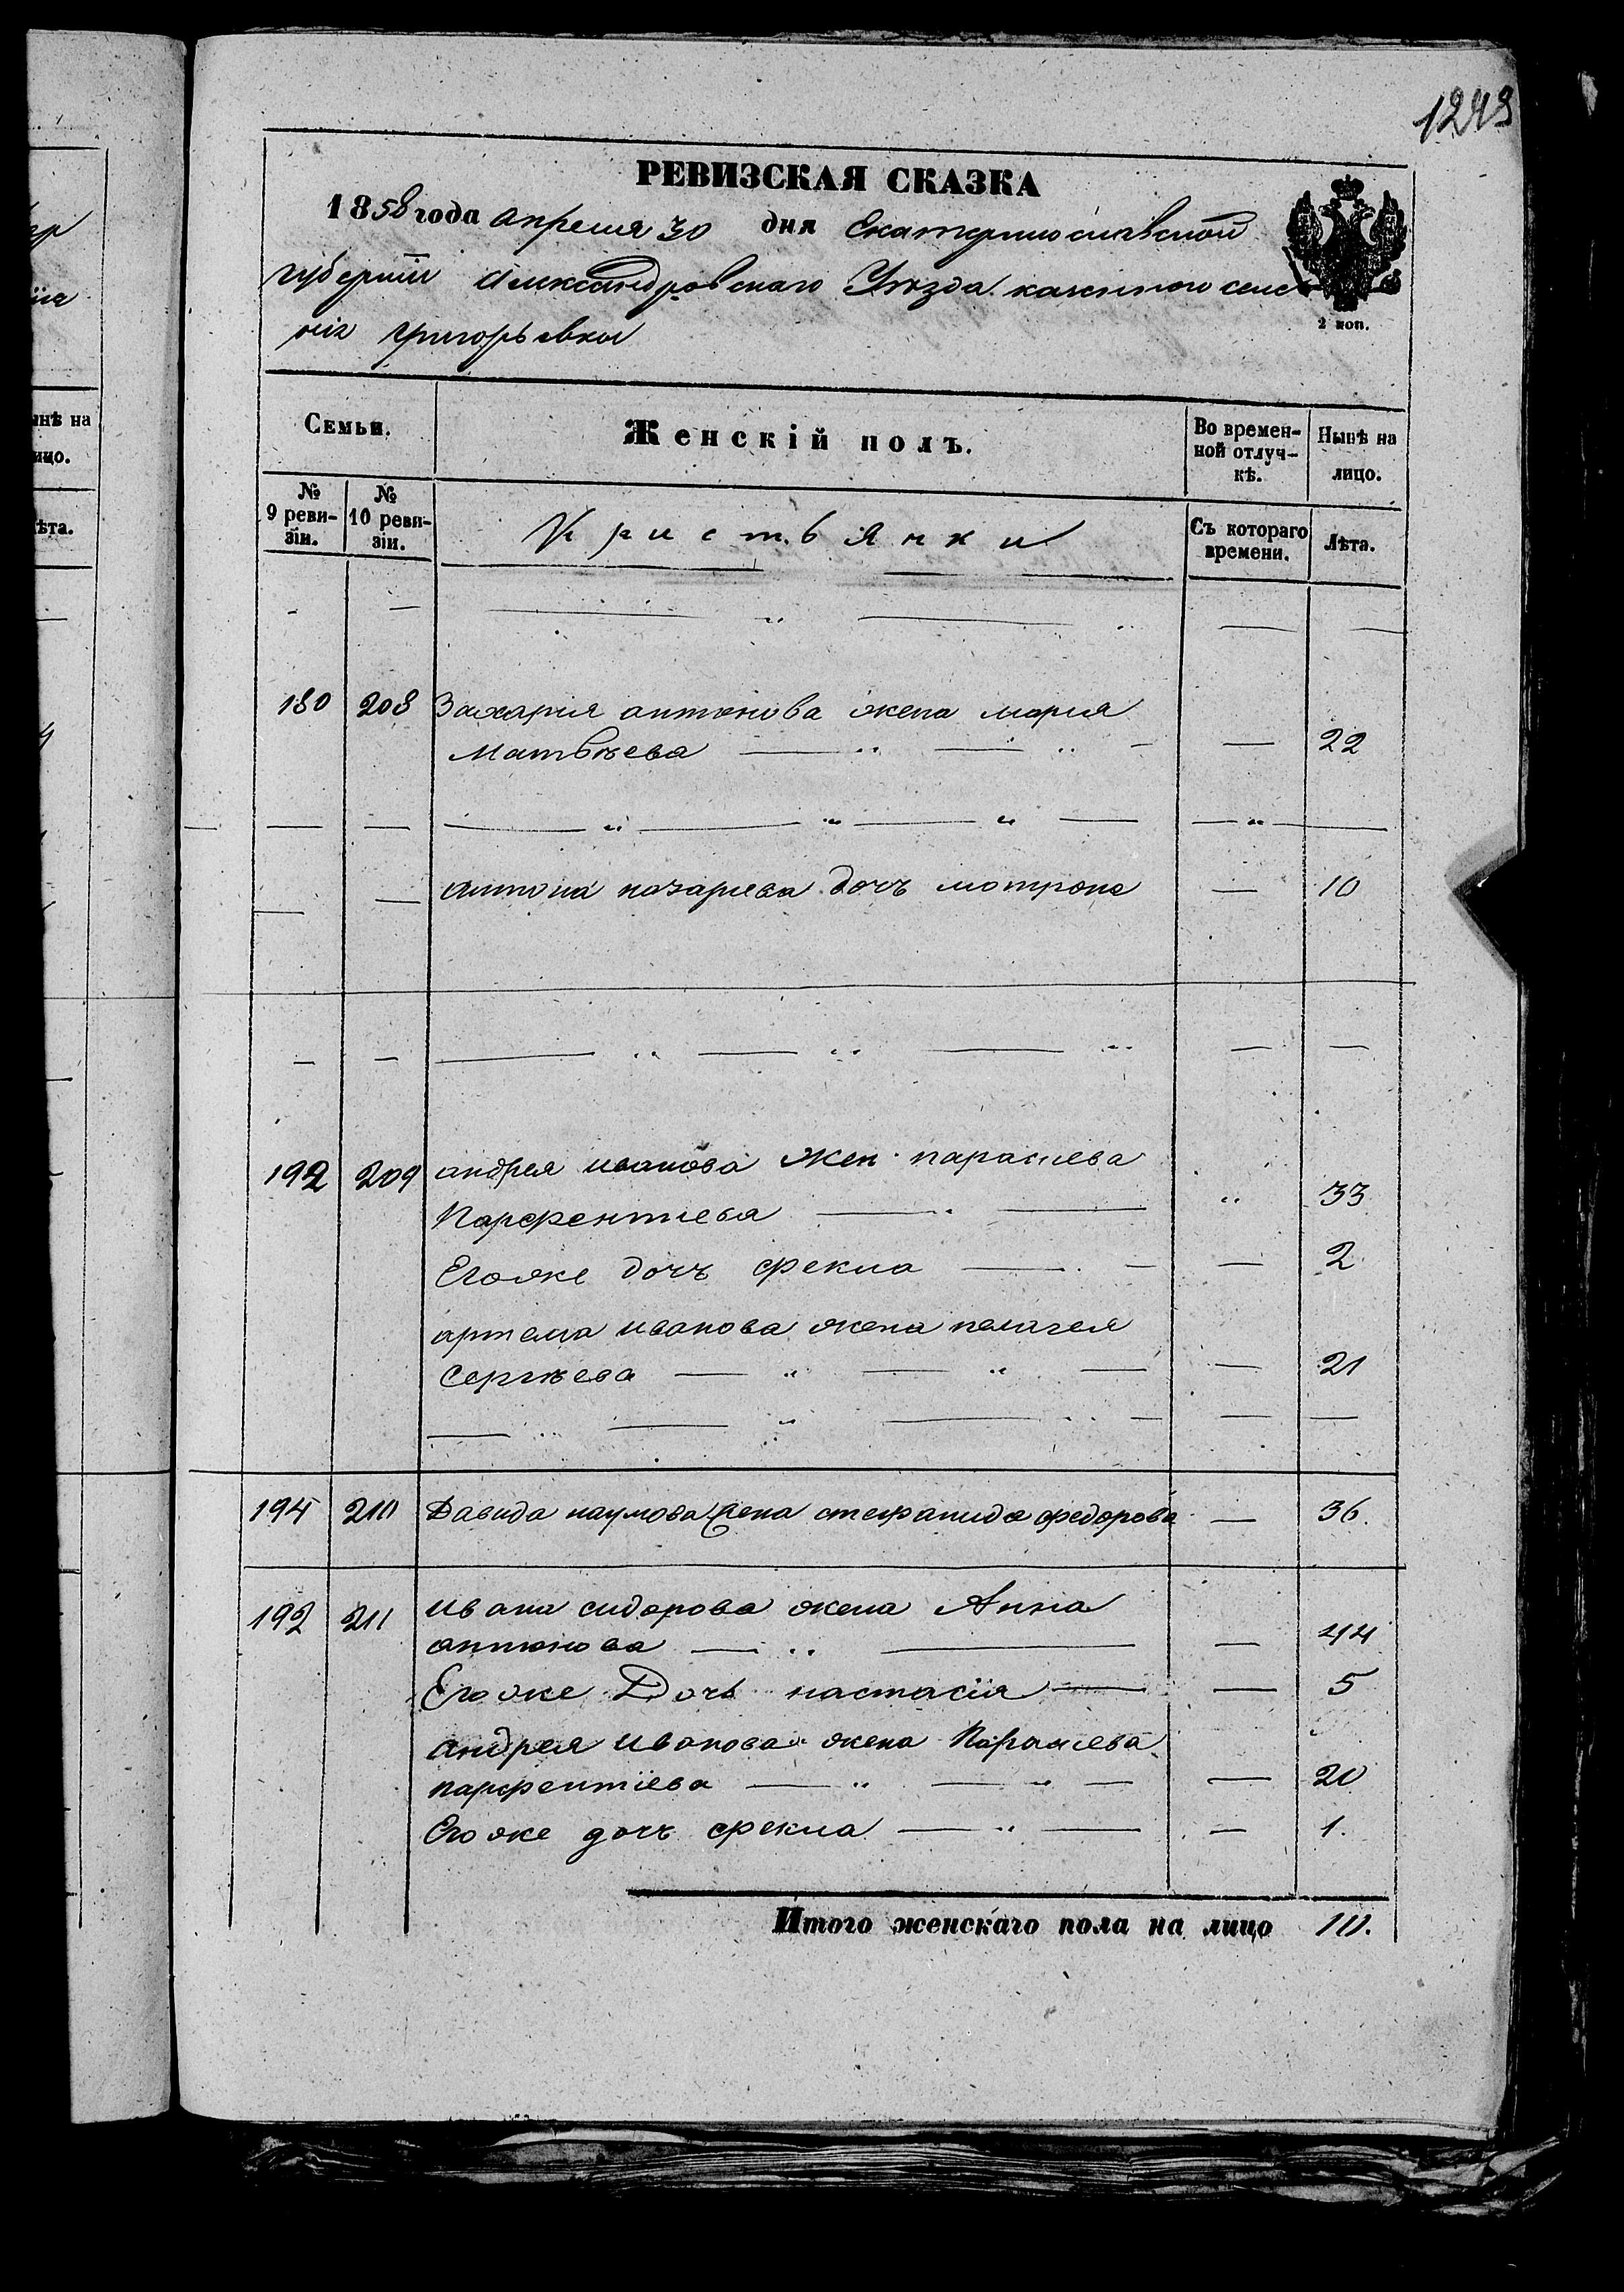 1243
РЕВИЗСКАЯ СКАЗКА
1858 года апреля 30 дня Екатеринославской
губернiи Александровского Уѣзда казенного селе
нiя григорьевки
2 коп.
Семьи.
Женскiй полъ.
Во времен-
ной отлуч-
кѣ.
Нынѣ на
лицо.
№
9 реви-
зiи.
№
10 реви-
зiи.
Кристьянки
Съ котораго
времени.
Лѣта.
180 208 Захария антонова жена мария
Матвѣева — " — " — — 22
— — — " — " — " — — " —
антона назариева дочъ мотрона — 10
— — — " — " — " — —
192 209 андрея иванова жен параскева
Парфентиева — " — " 33
Егоже дочъ фекла — — — 2
артема иванова жена пелагея
Сергѣева — " — " — — 21
194 210 Давида наумова жена степанида федорова — 36.
192 211 ивана сидорова жена Анна
антонова — " — — 44
Егоже Дочь настасiя — — 5
андрея иванова жена Параскева
парфентiева — " — " — — 20
Егоже дочъ фекла — " — — 1.
Итого женскаго пола на лицо 10.
инѣ на
ицо.
ѣта.